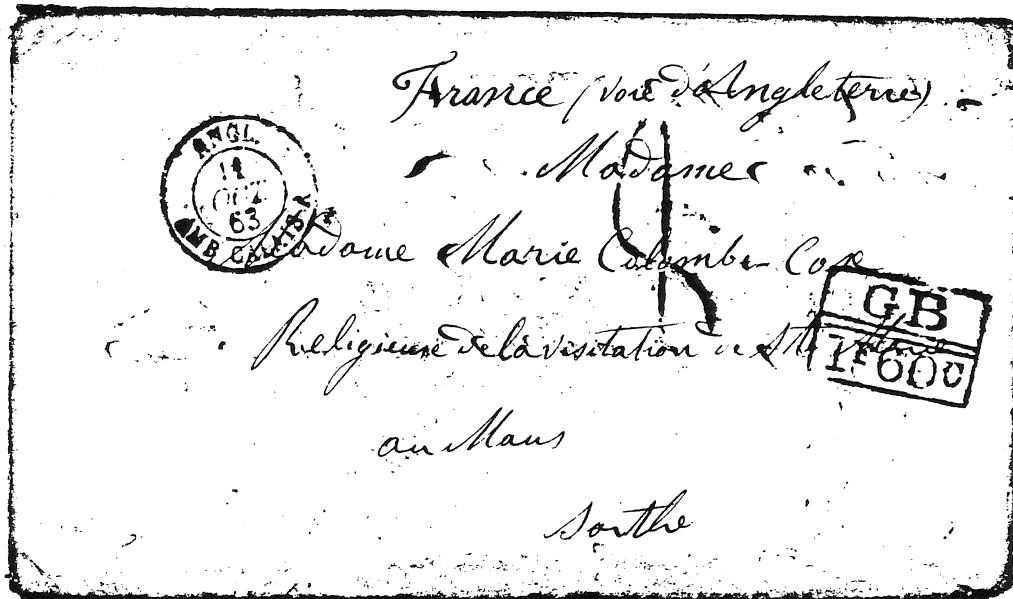 France (voie d'Angleterre)
Madame
Madame Marie Colombe Cose
Religieuse de la visitation de Ste Marie
au Mans
Sarthe
ANGL.
14
OCT.
63
AMB. CALAIS A
GB
1F60C